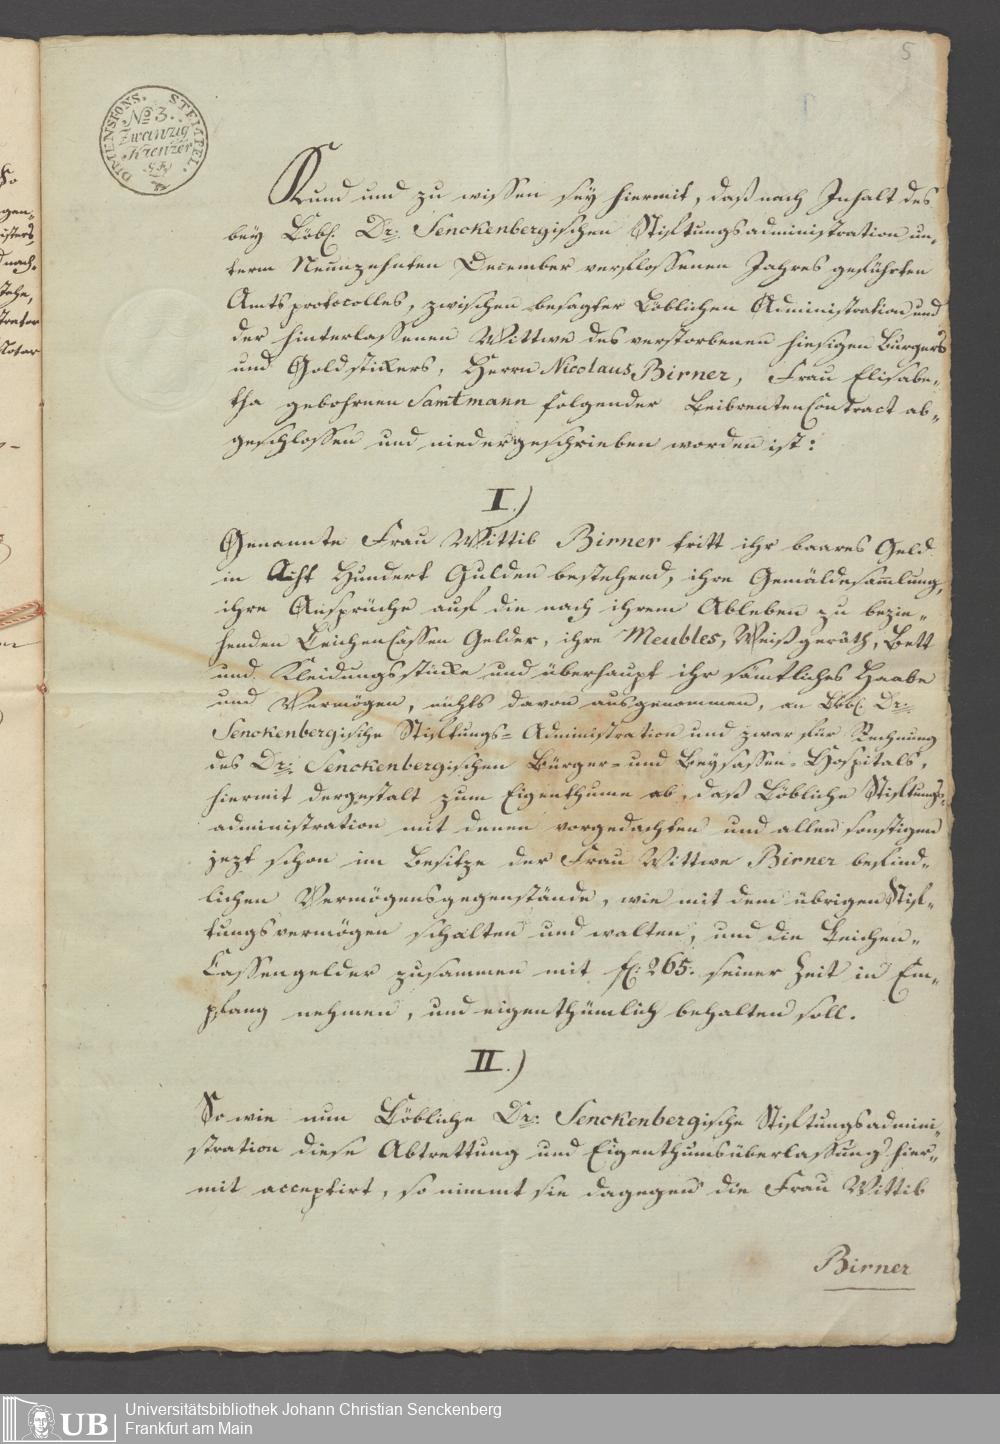 5
DIMENSIONS. STEMPEL.
No 3.
Zwanzig
Kreuzer
Kund und zu wissen sey hiermit, daß nach Inhalt des
bey Löbl. Dr: Senckenbergischen Stiftungsadministration un„
term Neunzehnten December verflossenen Jahres geführten
Amtsprotocolles, zwischen besagter Löblichen Administration und
der hinterlassenen Wittwe des verstorbenen hiesigen Burgers
und Goldstickers, Herrn Nicolaus Birner, Frau Elisabe„
tha gebohrnen Samtmann folgender LeibrentenContract ab„
geschlossen und niedergeschrieben worden ist:
I.)
Genannte Frau Wittib Birner tritt ihr baares Geld
in Acht Hundert Gulden bestehend, ihre Gemäldesammlung,
ihre Ansprüche auf die nach ihrem Ableben zu bezie„
henden LeichenCassen Gelder, ihre Meubles, Weißgeräth, Bett
und Kleidungsstücke und überhaupt ihr sämtliches Haabe
und Vermögen, nichts davon ausgenommen, an Löbl. Dr:
Senckenbergische Stiftungs-Administration und zwar für Rechnung
des Dr: Senckenbergischen Bürger- und Beysassen-Hospitals,
hiermit dergestalt zum Eigenthume ab, daß Löbliche Stiftungs„
administration mit denen vorgedachten und allen sonstigen
jezt schon im Besitze der Frau Wittwe Birner befind„
lichen Vermögensgegenstände, wie mit dem übrigen Stif„
tungsvermögen schalten und walten, und die Leichen„
Cassengelder zusammen mit fl: 265. seiner Zeit in Em„
pfang nehmen, und eigenthümlich behalten soll.
II.)
So wie nun Löbliche Dr: Senckenbergische Stiftungsadmini„
stration diese Abtrettung und Eigenthumsüberlassung hier„
mit acceptirt, so nimmt sie dagegen die Frau Wittib
Birner
UB
Universitätsbibliothek Johann Christian Senckenberg
Frankfurt am Main